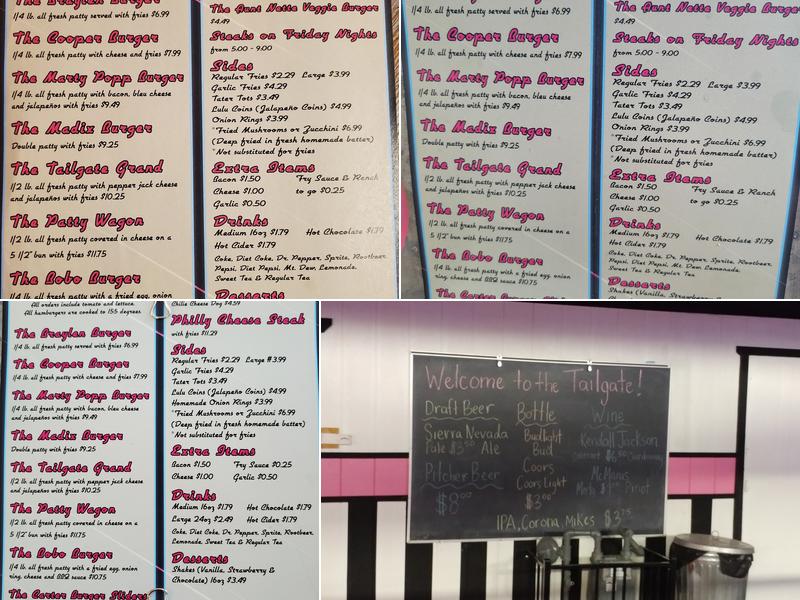 The Braylen Burger
1/4 lb. all fresh patty served with fries $6.99
The Cooper Burger
1/4 lb. all fresh patty with cheese and fries $7.99
The Marty Popp Burger
1/4 lb. all fresh patty with bacon, bleu cheese
and jalapeños with fries $9.49
The Madix Burger
Double patty with fries $9.25
The Tailgate Grand
1/2 lb. all fresh patty with pepper jack cheese
and jalapeños with fries $10.25
The Patty Wagon
1/2 lb. all fresh patty covered in cheese on a
5 1/2" bun with fries $11.75
The Bobo Burger
1/4 lb. all fresh patty with a fried egg, onion
The Aunt Netta Veggie Burger
$4.49
Steaks on Friday Nights
from 5:00 - 9:00
Sides
Regular Fries $2.29 Large $3.99
Garlic Fries $4.29
Tater Tots $3.49
Lulu Coins (Jalapeño Coins) $4.99
Onion Rings $3.99
*Fried Mushrooms or Zucchini $6.99
(Deep fried in fresh homemade batter)
*Not substituted for fries
Extra Items
Bacon $1.50 Fry Sauce & Ranch
Cheese $1.00 to go $0.25
Garlic $0.50
Drinks
Medium 16oz $1.79 Hot Chocolate $1.79
Hot Cider $1.79
Coke, Diet Coke, Dr. Pepper, Sprite, Rootbeer,
Pepsi, Diet Pepsi, Mt. Dew, Lemonade,
Sweet Tea & Regular Tea
Desserts
1/4 lb. all fresh patty served with fries $6.99
The Cooper Burger
1/4 lb. all fresh patty with cheese and fries $7.99
The Marty Popp Burger
1/4 lb. all fresh patty with bacon, bleu cheese
and jalapeños with fries $9.49
The Madix Burger
Double patty with fries $9.25
The Tailgate Grand
1/2 lb. all fresh patty with pepper jack cheese
and jalapeños with fries $10.25
The Patty Wagon
1/2 lb. all fresh patty covered in cheese on a
5 1/2" bun with fries $11.75
The Bobo Burger
1/4 lb. all fresh patty with a fried egg, onion
ring, cheese and BBQ sauce $10.75
The Carter Burger Sliders
The Aunt Netta Veggie Burger
$4.49
Steaks on Friday Nights
from 5:00 - 9:00
Sides
Regular Fries $2.29 Large $3.99
Garlic Fries $4.29
Tater Tots $3.49
Lulu Coins (Jalapeño Coins) $4.99
Onion Rings $3.99
*Fried Mushrooms or Zucchini $6.99
(Deep fried in fresh homemade batter)
*Not substituted for fries
Extra Items
Bacon $1.50 Fry Sauce & Ranch
Cheese $1.00 to go $0.25
Garlic $0.50
Drinks
Medium 16oz $1.79 Hot Chocolate $1.79
Hot Cider $1.79
Coke, Diet Coke, Dr. Pepper, Sprite, Rootbeer,
Pepsi, Diet Pepsi, Mt. Dew, Lemonade,
Sweet Tea & Regular Tea
Desserts
Shakes (Vanilla, Strawberry
All orders include tomato and lettuce.
All hamburgers are cooked to 155 degrees.
The Braylen Burger
1/4 lb. all fresh patty served with fries $6.99
The Cooper Burger
1/4 lb. all fresh patty with cheese and fries $7.99
The Marty Popp Burger
1/4 lb. all fresh patty with bacon, bleu cheese
and jalapeños with fries $9.49
The Madix Burger
Double patty with fries $9.25
The Tailgate Grand
1/2 lb. all fresh patty with pepper jack cheese
and jalapeños with fries $10.25
The Patty Wagon
1/2 lb. all fresh patty covered in cheese on a
5 1/2" bun with fries $11.75
The Bobo Burger
1/4 lb. all fresh patty with a fried egg, onion
ring, cheese and BBQ sauce $10.75
The Carter Burger Sliders
Chili Cheese Dog $4.59
Philly Cheese Steak
with fries $11.29
Sides
Regular Fries $2.29 Large $3.99
Garlic Fries $4.29
Tater Tots $3.49
Lulu Coins (Jalapeño Coins) $4.99
Homemade Onion Rings $3.99
*Fried Mushrooms or Zucchini $6.99
(Deep fried in fresh homemade batter)
*Not substituted for fries
Extra Items
Bacon $1.50 Fry Sauce $0.25
Cheese $1.00 Garlic $0.50
Drinks
Medium 16oz $1.79 Hot Chocolate $1.79
Large 24oz $2.49 Hot Cider $1.79
Coke, Diet Coke, Dr. Pepper, Sprite, Rootbeer,
Lemonade, Sweet Tea & Regular Tea
Desserts
Shakes (Vanilla, Strawberry &
Chocolate) 16oz $3.49
Welcome to the Tailgate!
Draft Beer
Sierra Nevada
Pale $3.50 Ale
Pitcher Beer
$8.00
Bottle
Budlight
Bud
Coors
Coors Light
$3.00
Wine
Kendall Jackson
IPA, Corona, Mikes $3.75